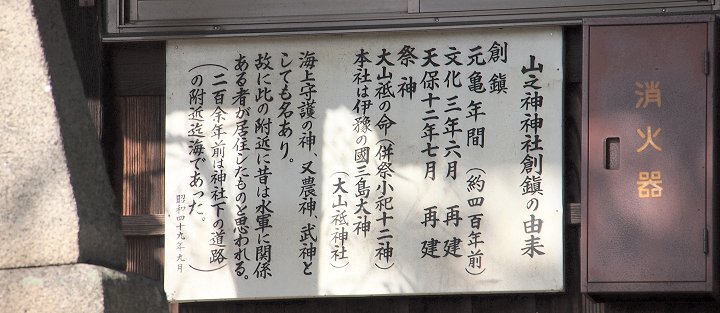 山之神神社創鎮の由来
創鎮
元亀年間（約四百年前）
文化三年六月 再建
天保十二年七月 再建
祭神
大山祇の命（併祭小祀十二神）
本社は伊豫の國三島大神
（大山祇神社）
海上守護の神、又農神、武神と
しても名あり。
故に此の附近に昔は水軍に関係
ある者が居住したものと思われる。
（二百余年前は神社下の道路
の附近迄海であった。）
昭和四十九年九月
消火器